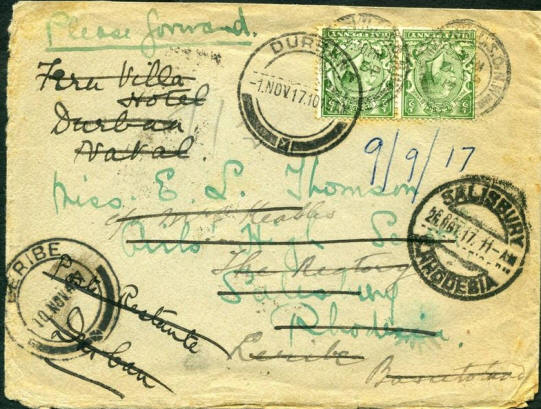 Please forward.
Fern Villa
Hotel
Durban
Natal.
DURBAN
1.NOV17.10
9/9/17
Miss E. L. Thomson
c/o Mrs Keables
Girls High
The Rectory
Salisbury
Rhodesia
Leribe
Basutoland
SALISBURY
RHODESIA
LERIBE
10 NOV
Poste Restante
Durban
HALFPENNY
HALFPENNY